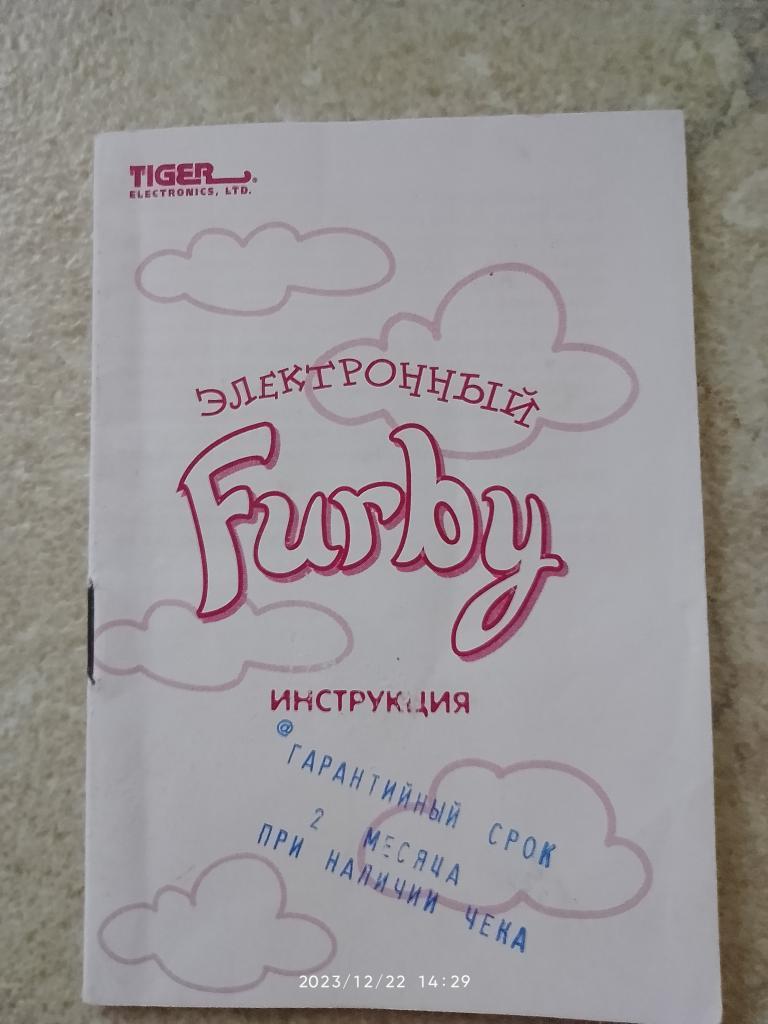 TIGER®
ELECTRONICS, LTD.
ЭЛЕКТРОННЫЙ
Furby
ИНСТРУКЦИЯ
@
ГАРАНТИЙНЫЙ СРОК
2 МЕСЯЦА
ПРИ НАЛИЧИИ ЧЕКА
2023/12/22 14:29